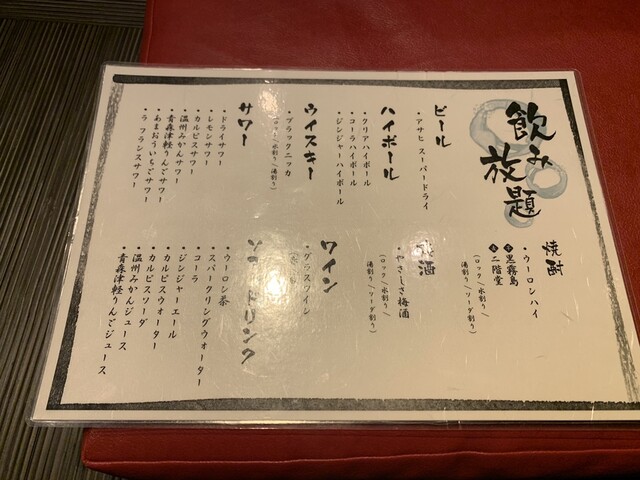 飲み
放題
ビール
・アサヒ スーパードライ
ハイボール
・クリアハイボール
・コーラハイボール
・ジンジャーハイボール
ウイスキー
・ブラックニッカ
(ロック/水割り/湯割り)
サワー
・ドライサワー
・レモンサワー
・カルピスサワー
・温州みかんサワー
・青森津軽りんごサワー
・あまおういちごサワー
・ラ フランスサワー
焼酎
・ウーロンハイ
芋 黒霧島
麦 二階堂
(ロック/水割り/
湯割り/ソーダ割り)
酒
・やさしさ梅酒
(ロック/水割り/
湯割り/ソーダ割り)
ワイン
・グラスワイン
ソフトドリンク
・ウーロン茶
・スパークリングウォーター
・コーラ
・ジンジャーエール
・カルピスウォーター
・カルピスソーダ
・温州みかんジュース
・青森津軽りんごジュース